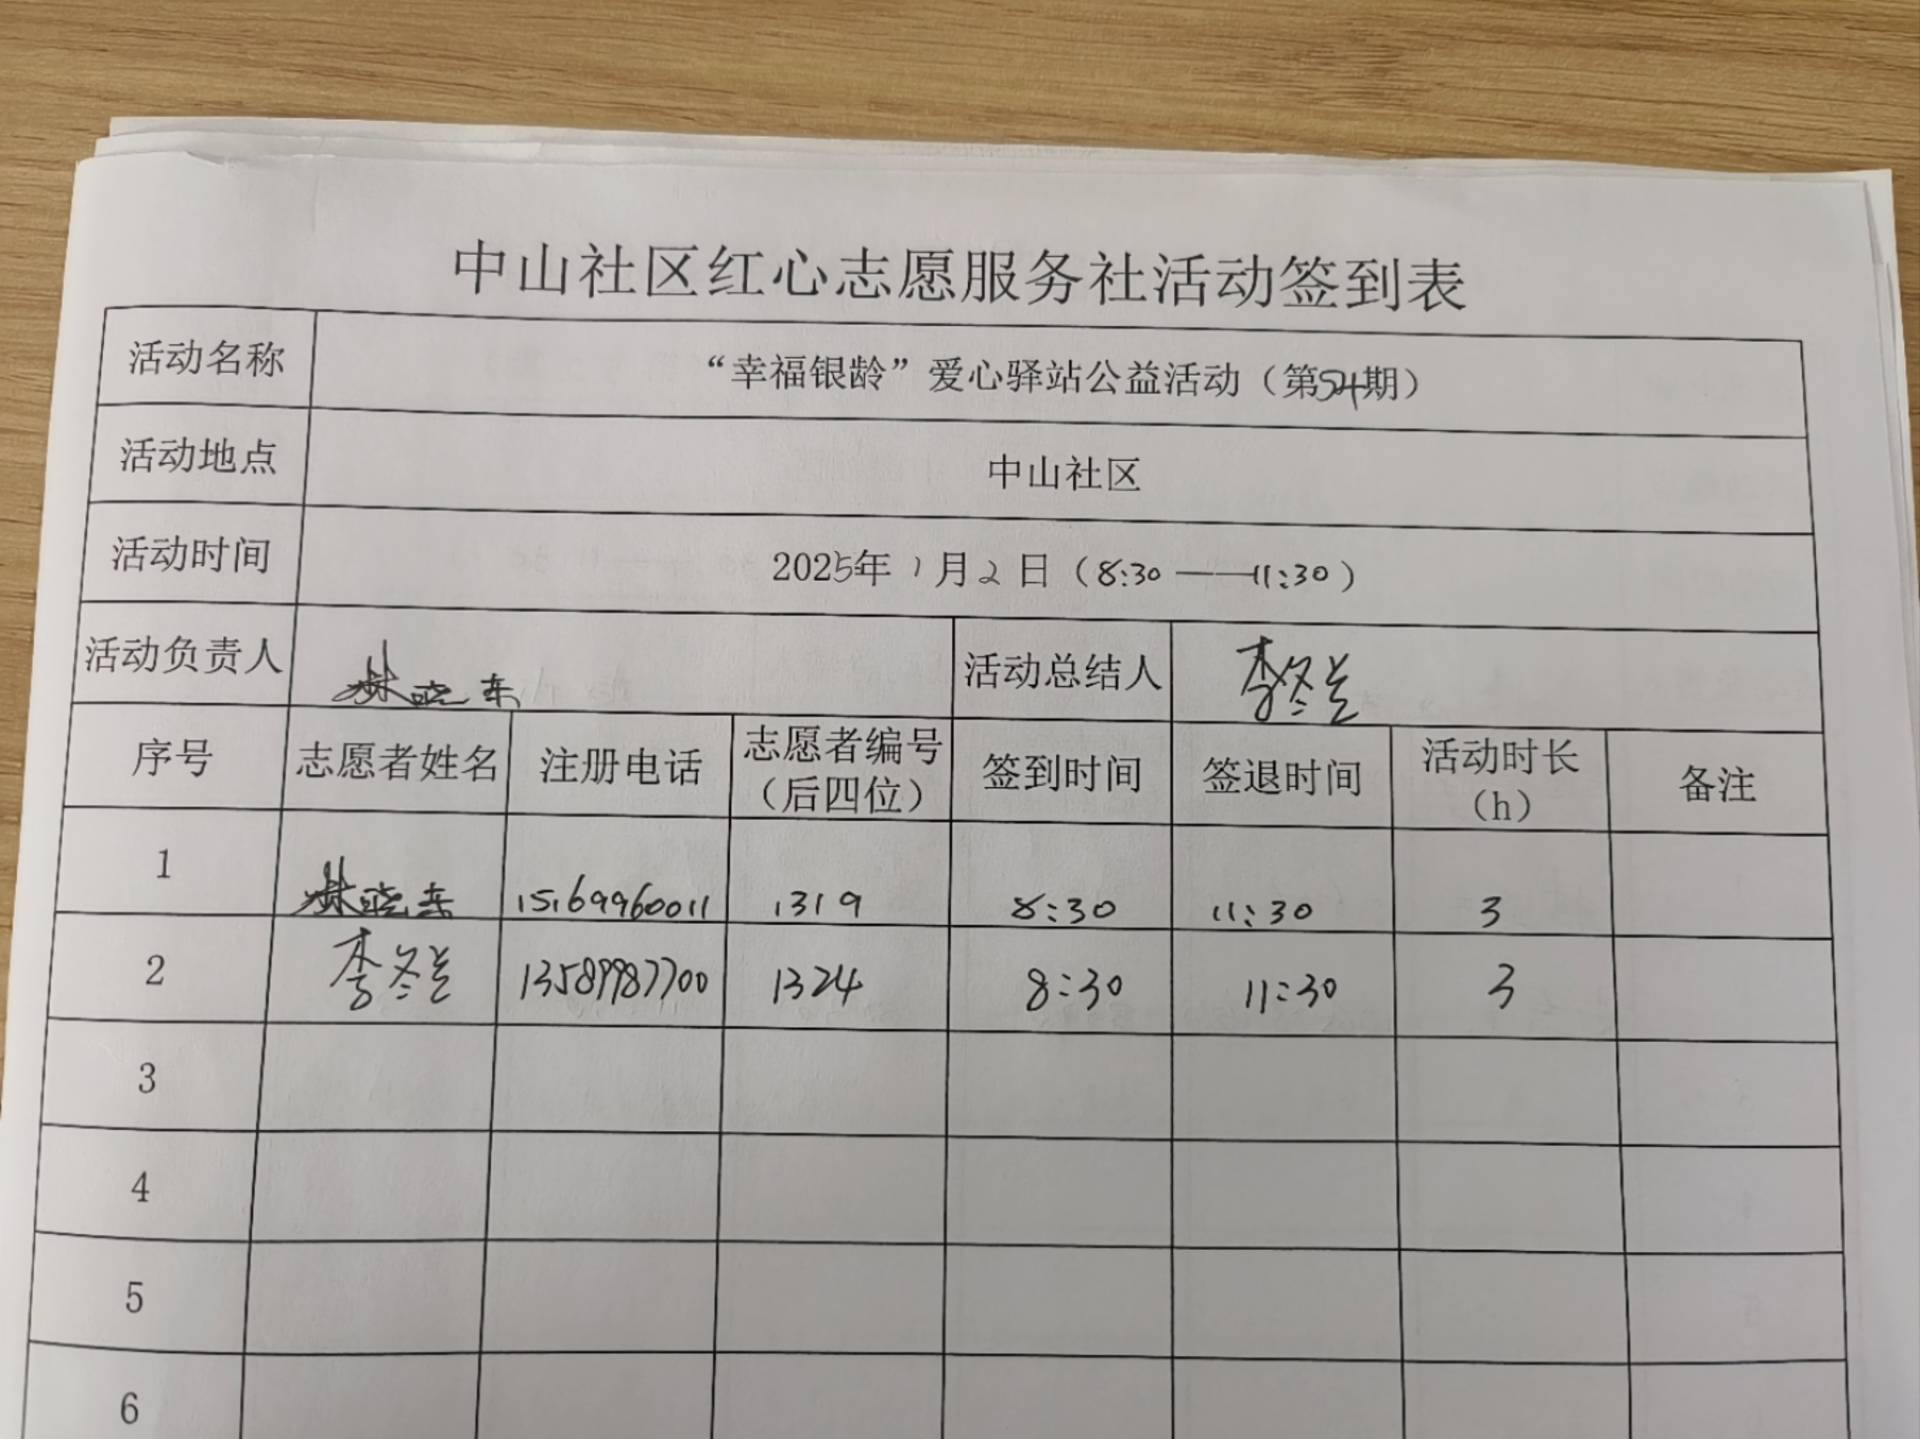 中山社区红心志愿服务社活动签到表
活动名称 “幸福银龄”爱心驿站公益活动（第54期）
活动地点 中山社区
活动时间 2025年1月2日（8:30——11:30）
活动负责人 林晓东 活动总结人 李冬兰
序号 志愿者姓名 注册电话 志愿者编号（后四位） 签到时间 签退时间 活动时长（h） 备注
1 林晓东 15169960011 1319 8:30 11:30 3
2 李冬兰 13589987700 1324 8:30 11:30 3
3
4
5
6